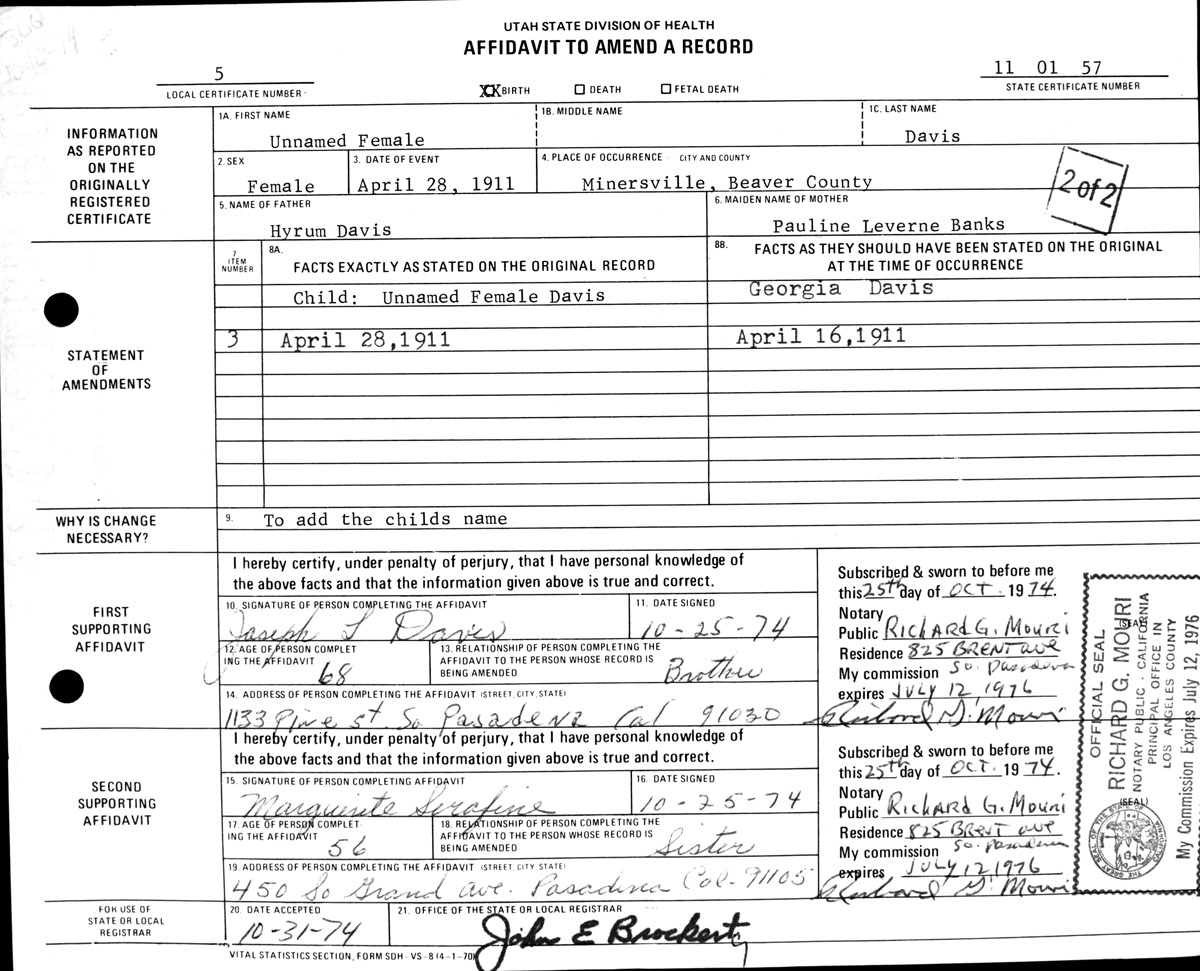 UTAH STATE DIVISION OF HEALTH
AFFIDAVIT TO AMEND A RECORD
5
LOCAL CERTIFICATE NUMBER
XX BIRTH ☐ DEATH ☐ FETAL DEATH
11 01 57
STATE CERTIFICATE NUMBER
INFORMATION
AS REPORTED
ON THE
ORIGINALLY
REGISTERED
CERTIFICATE
1A. FIRST NAME
Unnamed Female
1B. MIDDLE NAME
1C. LAST NAME
Davis
2. SEX
Female
3. DATE OF EVENT
April 28, 1911
4. PLACE OF OCCURRENCE - CITY AND COUNTY
Minersville, Beaver County
2 of 2
5. NAME OF FATHER
Hyrum Davis
6. MAIDEN NAME OF MOTHER
Pauline Leverne Banks
STATEMENT
OF
AMENDMENTS
7
ITEM
NUMBER
8A.
FACTS EXACTLY AS STATED ON THE ORIGINAL RECORD
8B.
FACTS AS THEY SHOULD HAVE BEEN STATED ON THE ORIGINAL
AT THE TIME OF OCCURRENCE
Child: Unnamed Female Davis
Georgia Davis
3
April 28,1911
April 16,1911
WHY IS CHANGE
NECESSARY?
9. To add the childs name
FIRST
SUPPORTING
AFFIDAVIT
I hereby certify, under penalty of perjury, that I have personal knowledge of
the above facts and that the information given above is true and correct.
10. SIGNATURE OF PERSON COMPLETING THE AFFIDAVIT
Joseph L Davis
11. DATE SIGNED
10-25-74
12. AGE OF PERSON COMPLET
ING THE AFFIDAVIT
68
13. RELATIONSHIP OF PERSON COMPLETING THE
AFFIDAVIT TO THE PERSON WHOSE RECORD IS
BEING AMENDED
Brother
14. ADDRESS OF PERSON COMPLETING THE AFFIDAVIT (STREET, CITY, STATE)
1133 Pine st So Pasadena Cal 91030
Subscribed & sworn to before me
this 25th day of OCT. 1974.
Notary (SEAL)
Public RICHARD G. MOURI
Residence 825 BRENT AVE
My commission So. Pasadena
expires JULY 12, 1976
Richard G. Mouri
SECOND
SUPPORTING
AFFIDAVIT
I hereby certify, under penalty of perjury, that I have personal knowledge of
the above facts and that the information given above is true and correct.
15. SIGNATURE OF PERSON COMPLETING AFFIDAVIT
Marguerite Serafine
16. DATE SIGNED
10-25-74
17. AGE OF PERSON COMPLET-
ING THE AFFIDAVIT
56
18. RELATIONSHIP OF PERSON COMPLETING THE
AFFIDAVIT TO THE PERSON WHOSE RECORD IS
BEING AMENDED
Sister
19. ADDRESS OF PERSON COMPLETING THE AFFIDAVIT (STREET, CITY, STATE)
450 So Grand Ave. Pasadena Cal. 91105
Subscribed & sworn to before me
this 25th day of OCT. 1974.
Notary (SEAL)
Public RICHARD G. MOURI
Residence 825 BRENT AVE
My commission So. Pasadena
expires JULY 12, 1976
Richard G. Mouri
OFFICIAL SEAL
RICHARD G. MOURI
NOTARY PUBLIC - CALIFORNIA
PRINCIPAL OFFICE IN
LOS ANGELES COUNTY
My Commission Expires July 12, 1976
FOR USE OF
STATE OR LOCAL
REGISTRAR
20. DATE ACCEPTED
10-31-74
21. OFFICE OF THE STATE OR LOCAL REGISTRAR
John E Brockert
VITAL STATISTICS SECTION, FORM SDH-VS-8 (4-1-70)